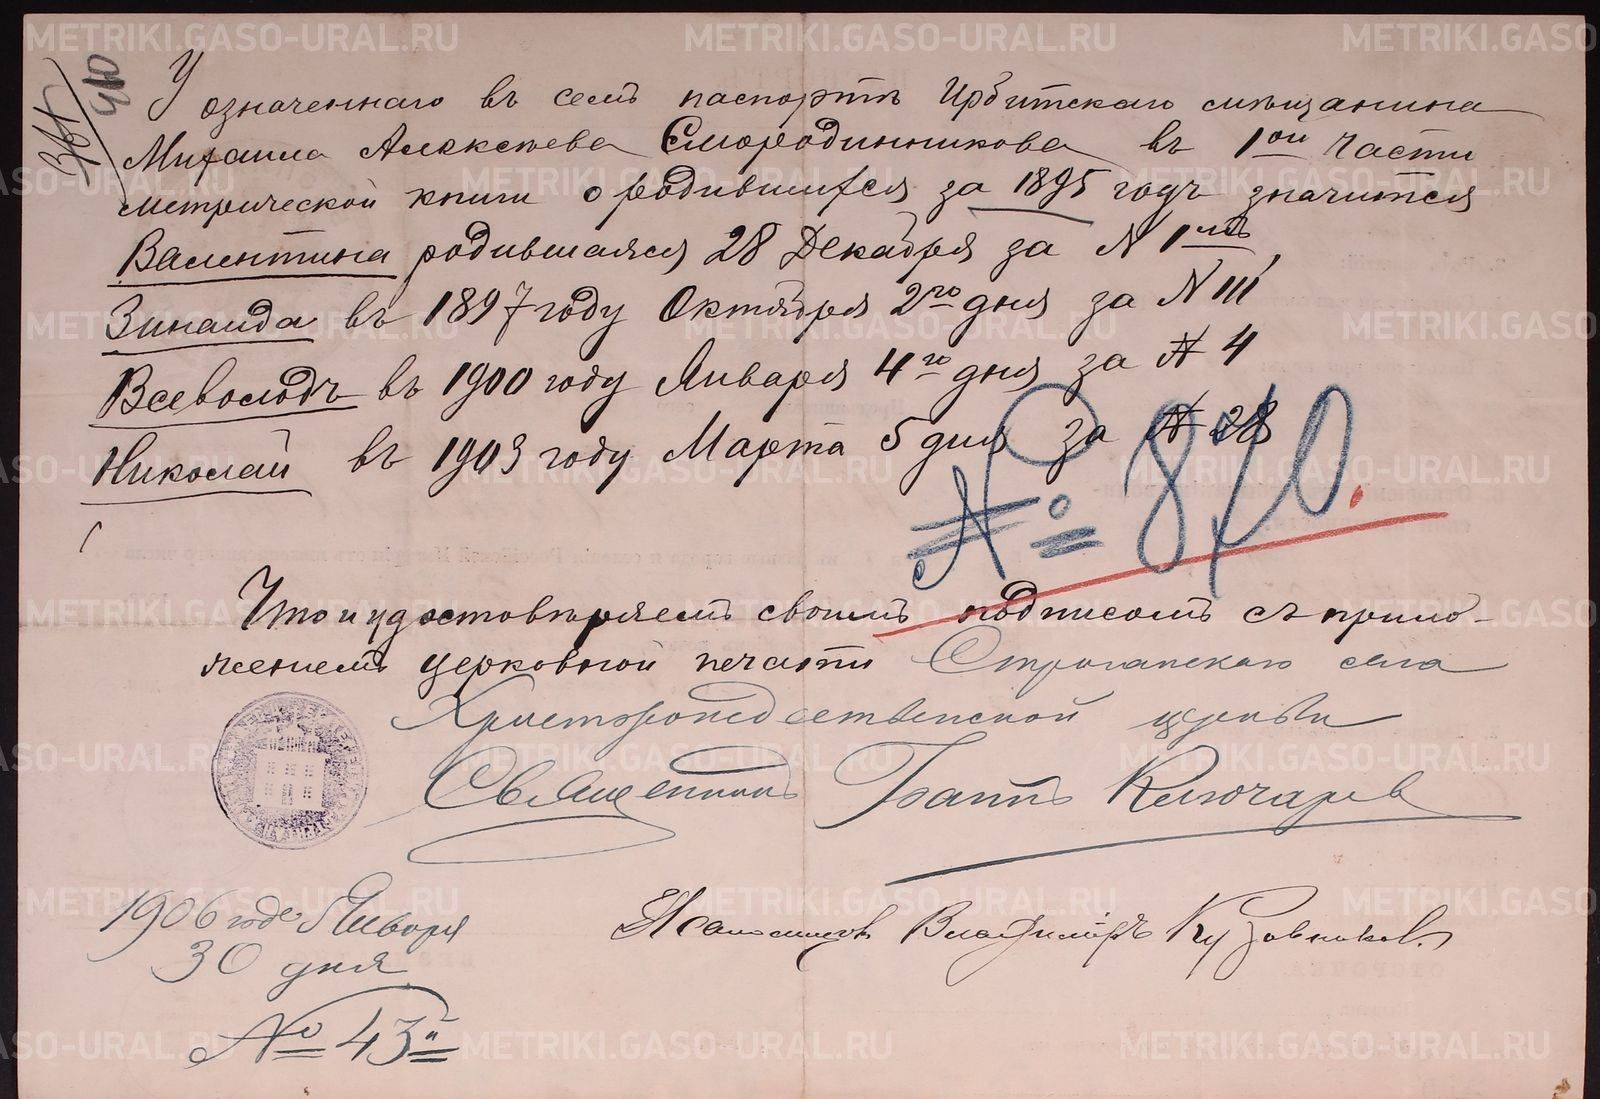 У означеннаго въ семъ паспортѣ Ирбитскаго мѣщанина
Михаила Алексѣева Смородинникова въ 1ой части
метрической книги о родившихся за 1895 годъ значится
Валентина родившаяся 28 Декабря за N
Зинаида въ 1897 году Октября 2го дня за N 111
Всеволодъ въ 1900 году Января 4го дня за № 4
Николай въ 1903 году Марта 5 дня за № 28
№ 870.
Что и удостовѣряемъ своимъ подписомъ съ прило-
женіемъ церковной печати Строганскаго села
Христорождественской церкви
Священникъ Ключарев
1906 года Января
30 дня
№ 43й
Псаломщикъ Владиміръ Кузовников.
METRIKI.GASO-URAL.RU